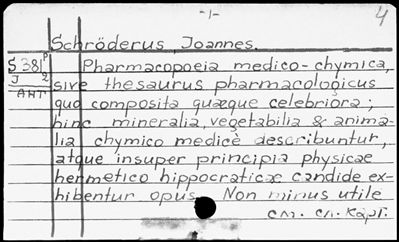 -1-
4
Schröderus, Joannes.
S 381 p
J 2
AHT
Pharmacopoeia medico-chymica,
sive thesaurus pharmacologicus
quo composita quæque celebriora;
hinc mineralia, vegetabilia & anima-
lia chymico medicè describuntur,
atque insuper principia physicae
hermetico hippocraticæ candide ex-
hibentur opus. Non minus utile
сл. сл. карт.